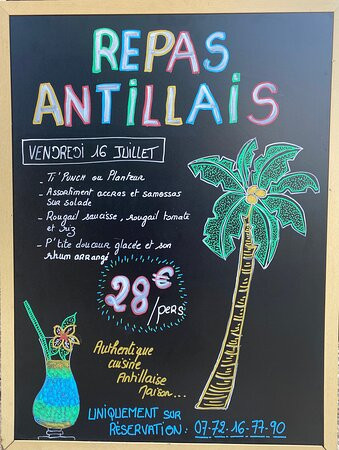 REPAS
ANTILLAIS
VENDREDI 16 JUILLET
- Ti'Punch ou Planteur
- Assortiment accras et samossas
sur salade
- Rougail saucisse, rougail tomate
et riz
- P'tite douceur glacée et son
rhum arrangé
28€
/pers
Authentique
cuisine
Antillaise
Maison...
UNIQUEMENT SUR
RÉSERVATION : 07-72-16-77-90